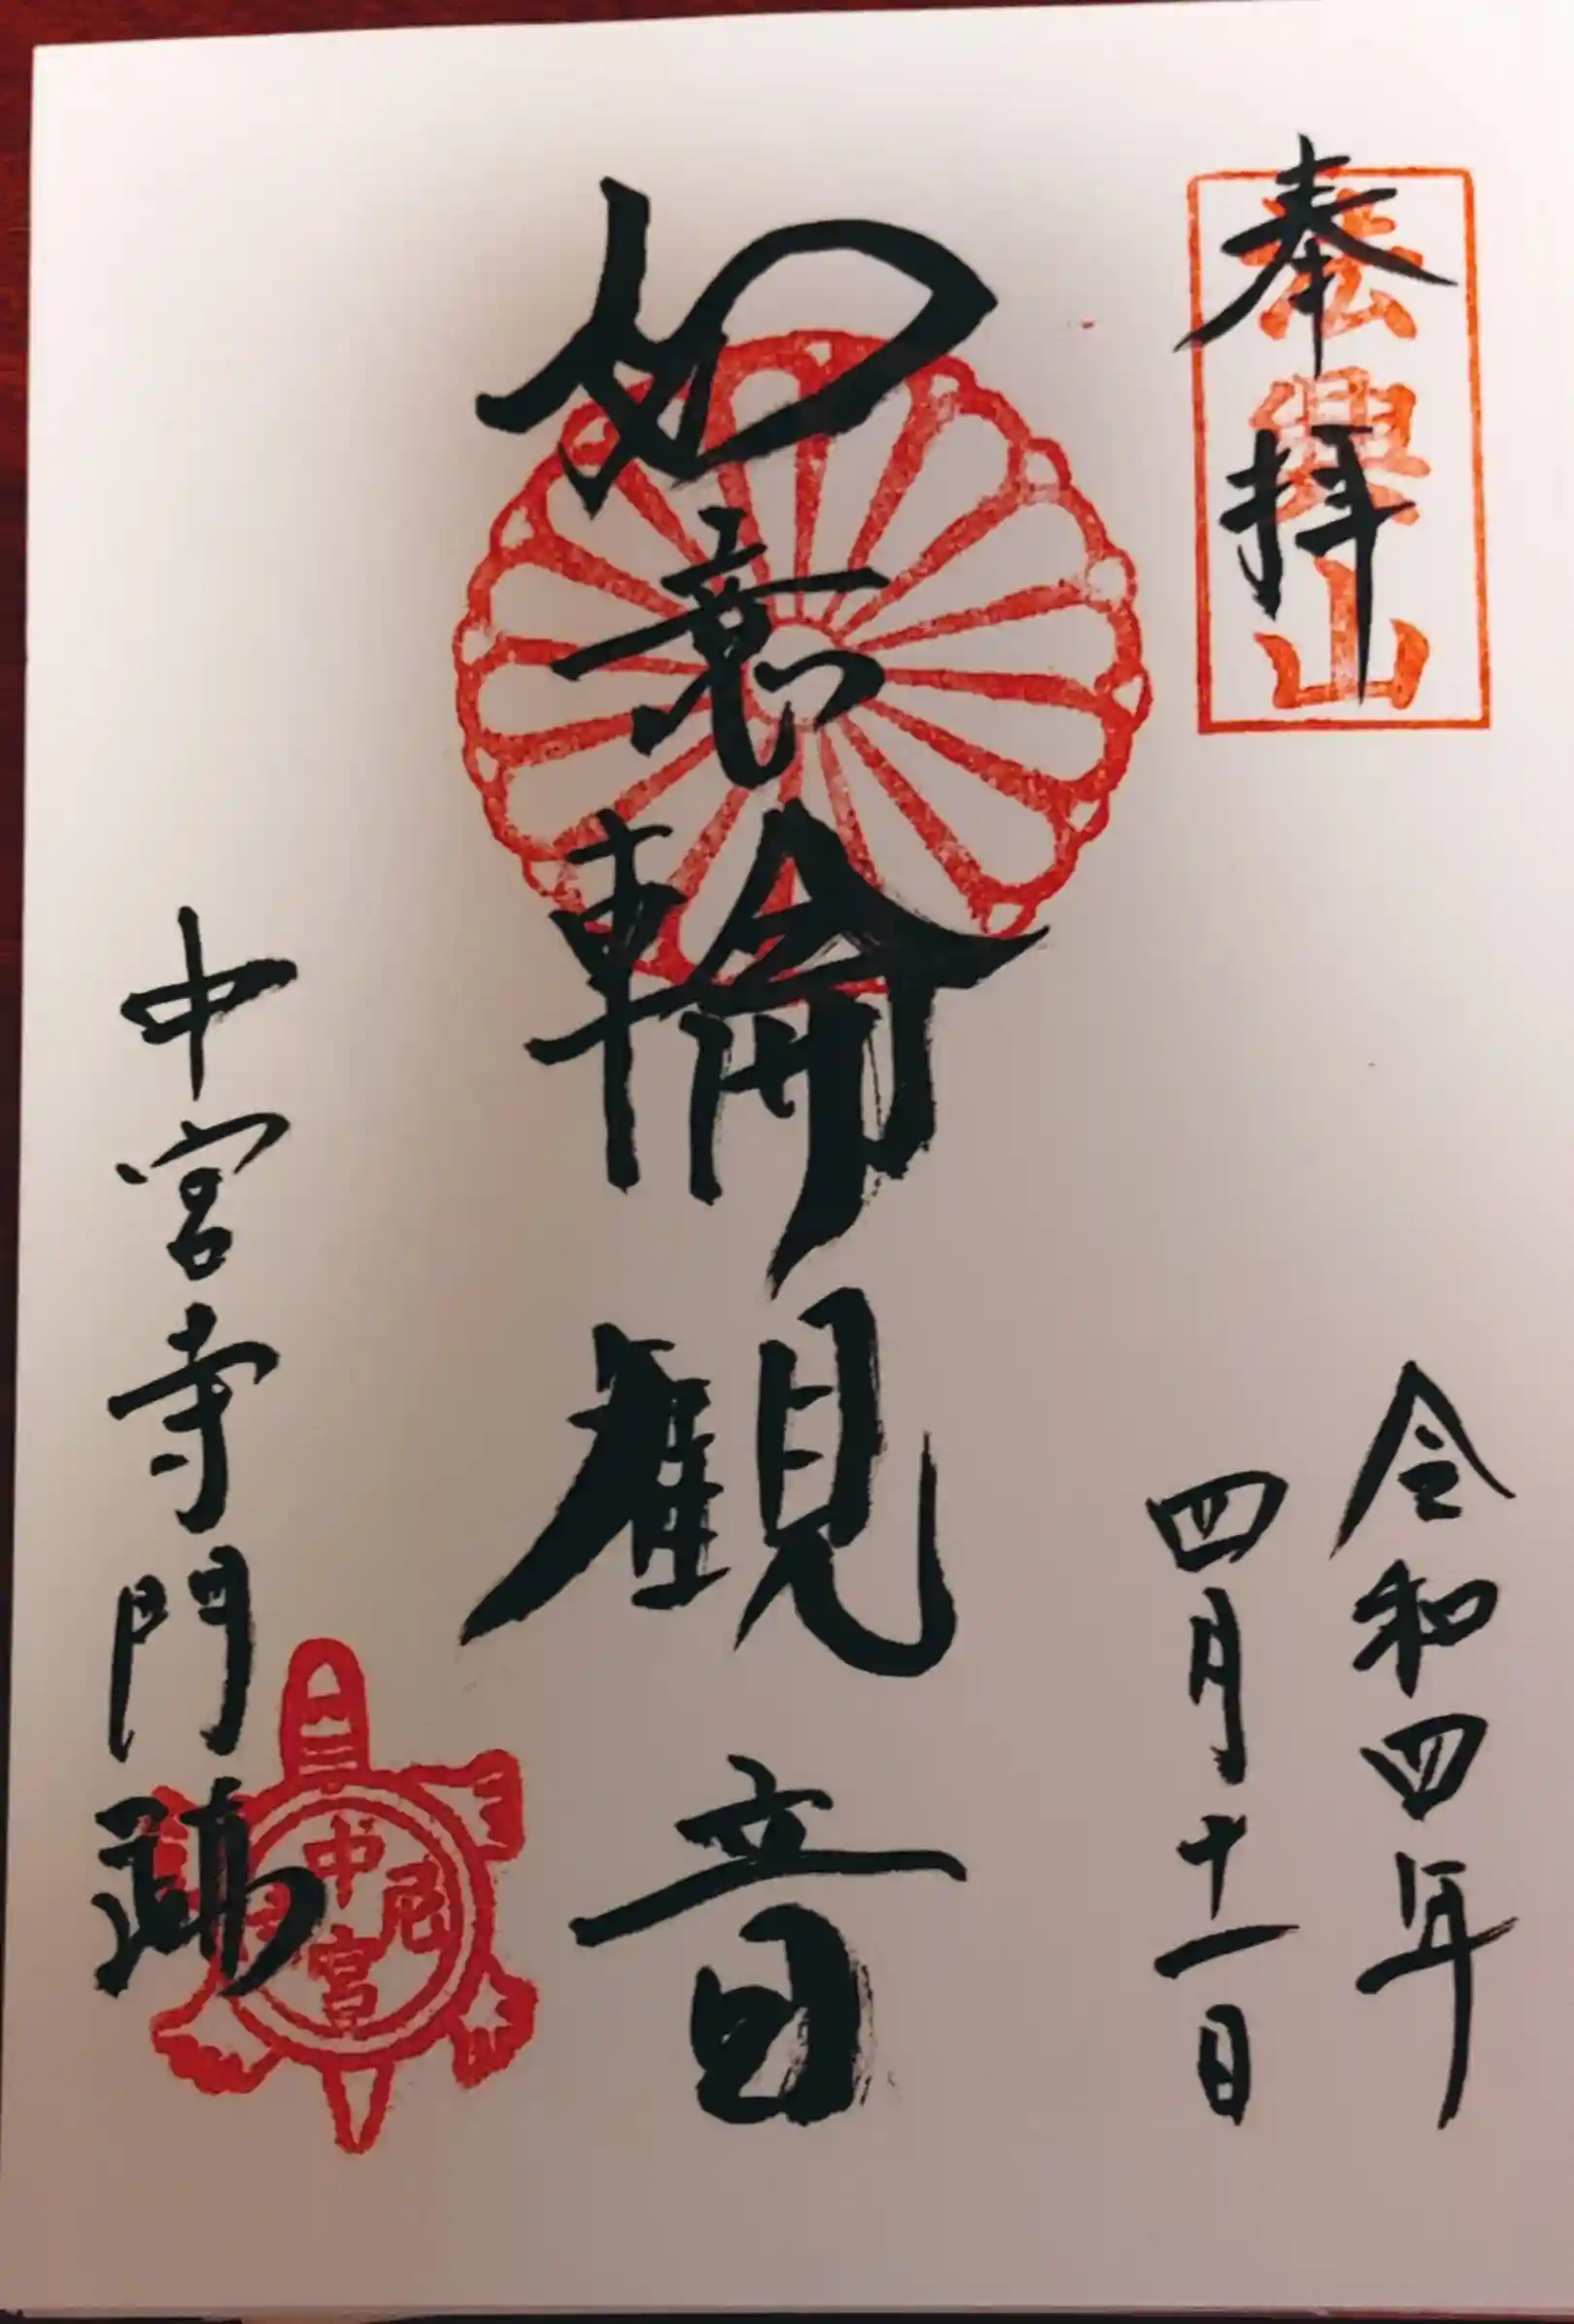 奉拝
法興山
令和四年
四月十一日
如意輪観音
中宮寺門跡
中宮
尼